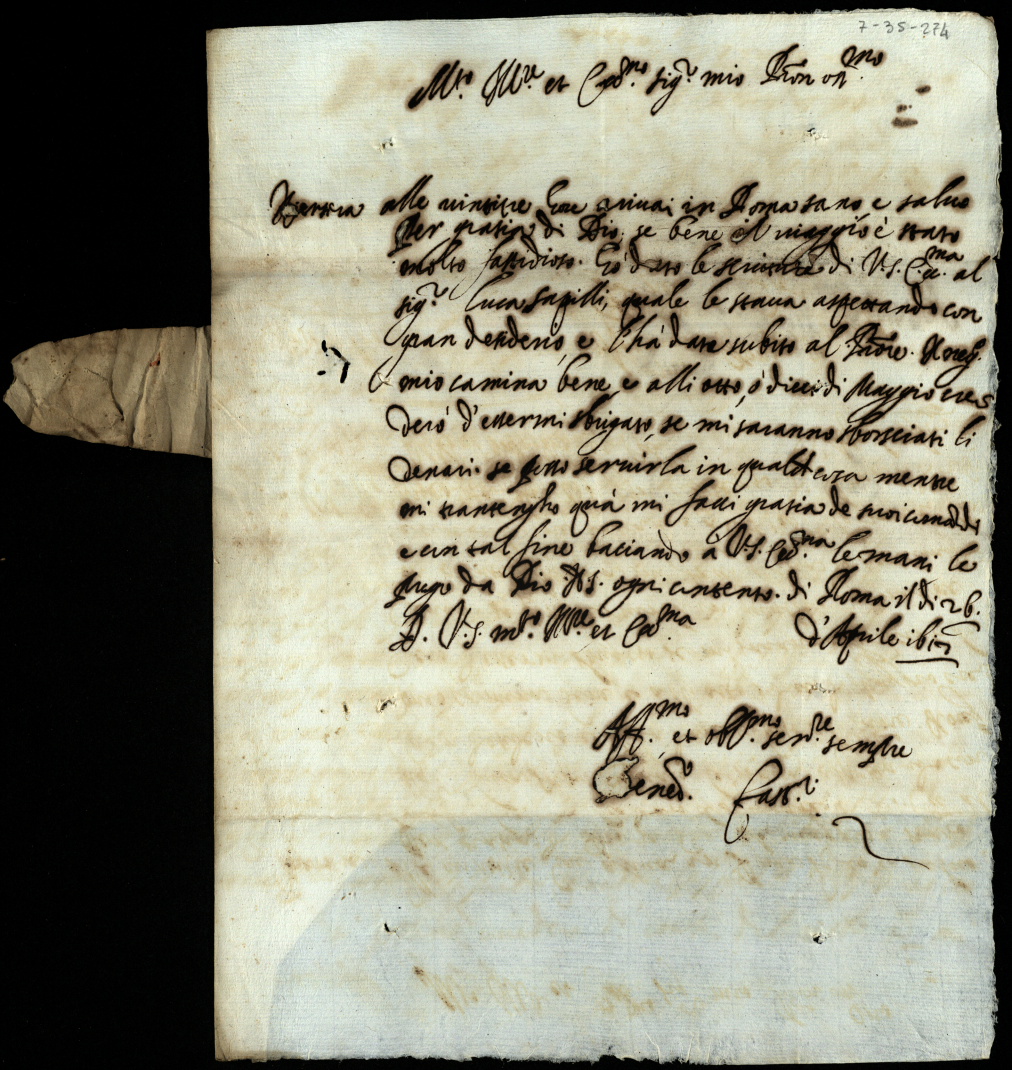 7-35-274
M.to Ill.re et Ecc.mo sig.r mio Pron on.mo
alle vintitre hore arivai in Roma sano e salvo
Per gratia di Dio, se bene il viaggio è stato
molto fastidioso. Hò dato le scritture di V.S. Ecc.ma al
sig.r Luca quale le stava aspettando con
gran desiderio, e l'hà date subito al Il neg.
mio camina bene, e alli otto, ò dieci di Maggio cre
derò d'essermi sbrigato, se mi saranno sborsciati li
denari. se posso servirla in qualche cosa mentre
mi trantengho quà mi facci gratia de suoi comandi
e con tal fine baciando a V.S. Ecc.ma le mani le
prego da Dio N.S. ogni contento. di Roma il di 26.
D. V.S. m.to Ill.re et Ecc.ma d'Aprile
Aff.mo et obb.mo ser.re sempre
Bened.o Cast.i